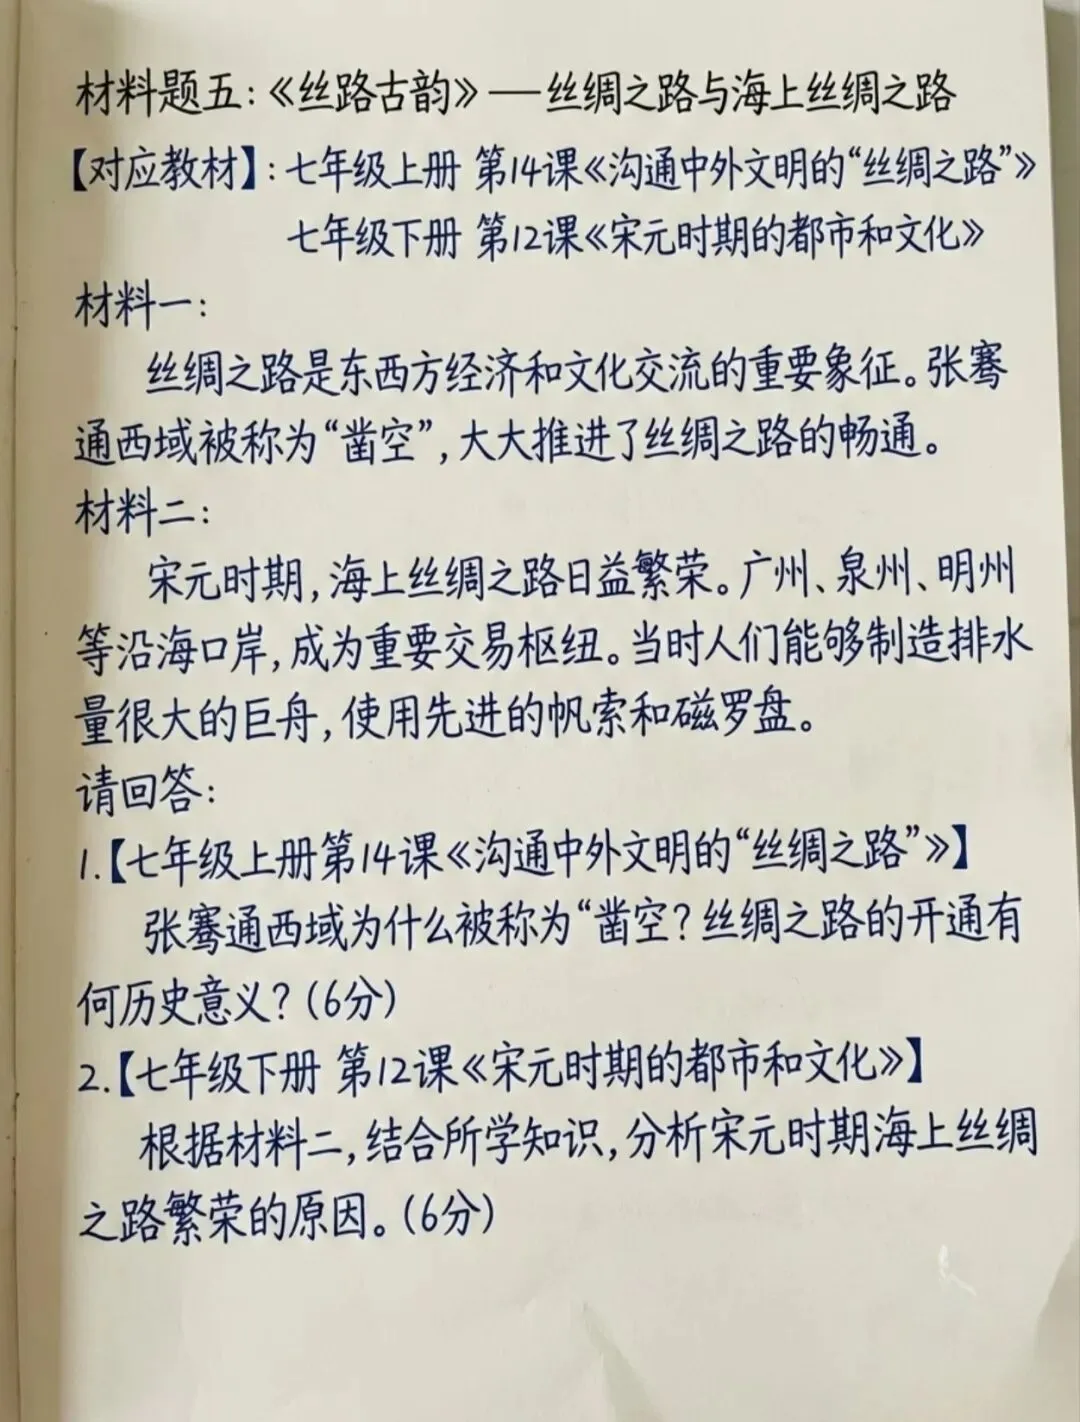 材料题五:《丝路古韵》——丝绸之路与海上丝绸之路
【对应教材】:七年级上册 第14课《沟通中外文明的“丝绸之路”》
七年级下册 第12课《宋元时期的都市和文化》
材料一:
丝绸之路是东西方经济和文化交流的重要象征。张骞
通西域被称为“凿空”,大大推进了丝绸之路的畅通。
材料二:
宋元时期,海上丝绸之路日益繁荣。广州、泉州、明州
等沿海口岸,成为重要交易枢纽。当时人们能够制造排水
量很大的巨舟,使用先进的帆索和磁罗盘。
请回答:
1.【七年级上册第14课《沟通中外文明的“丝绸之路”》】
张骞通西域为什么被称为“凿空?丝绸之路的开通有
何历史意义?(6分)
2.【七年级下册 第12课《宋元时期的都市和文化》】
根据材料二,结合所学知识,分析宋元时期海上丝绸
之路繁荣的原因。(6分)